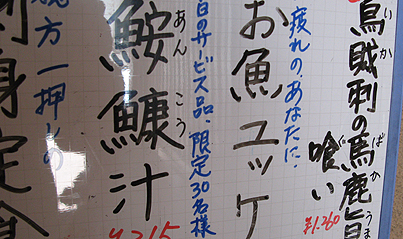 烏賊刺の馬鹿旨
いか ばか うま
喰い
ぐ
¥1.260
疲れの、あなたに、
お魚ユッケ
日のサービス品、限定30名様
鮟鱇汁
あんこう
¥315
親方一押しの
刺身定食